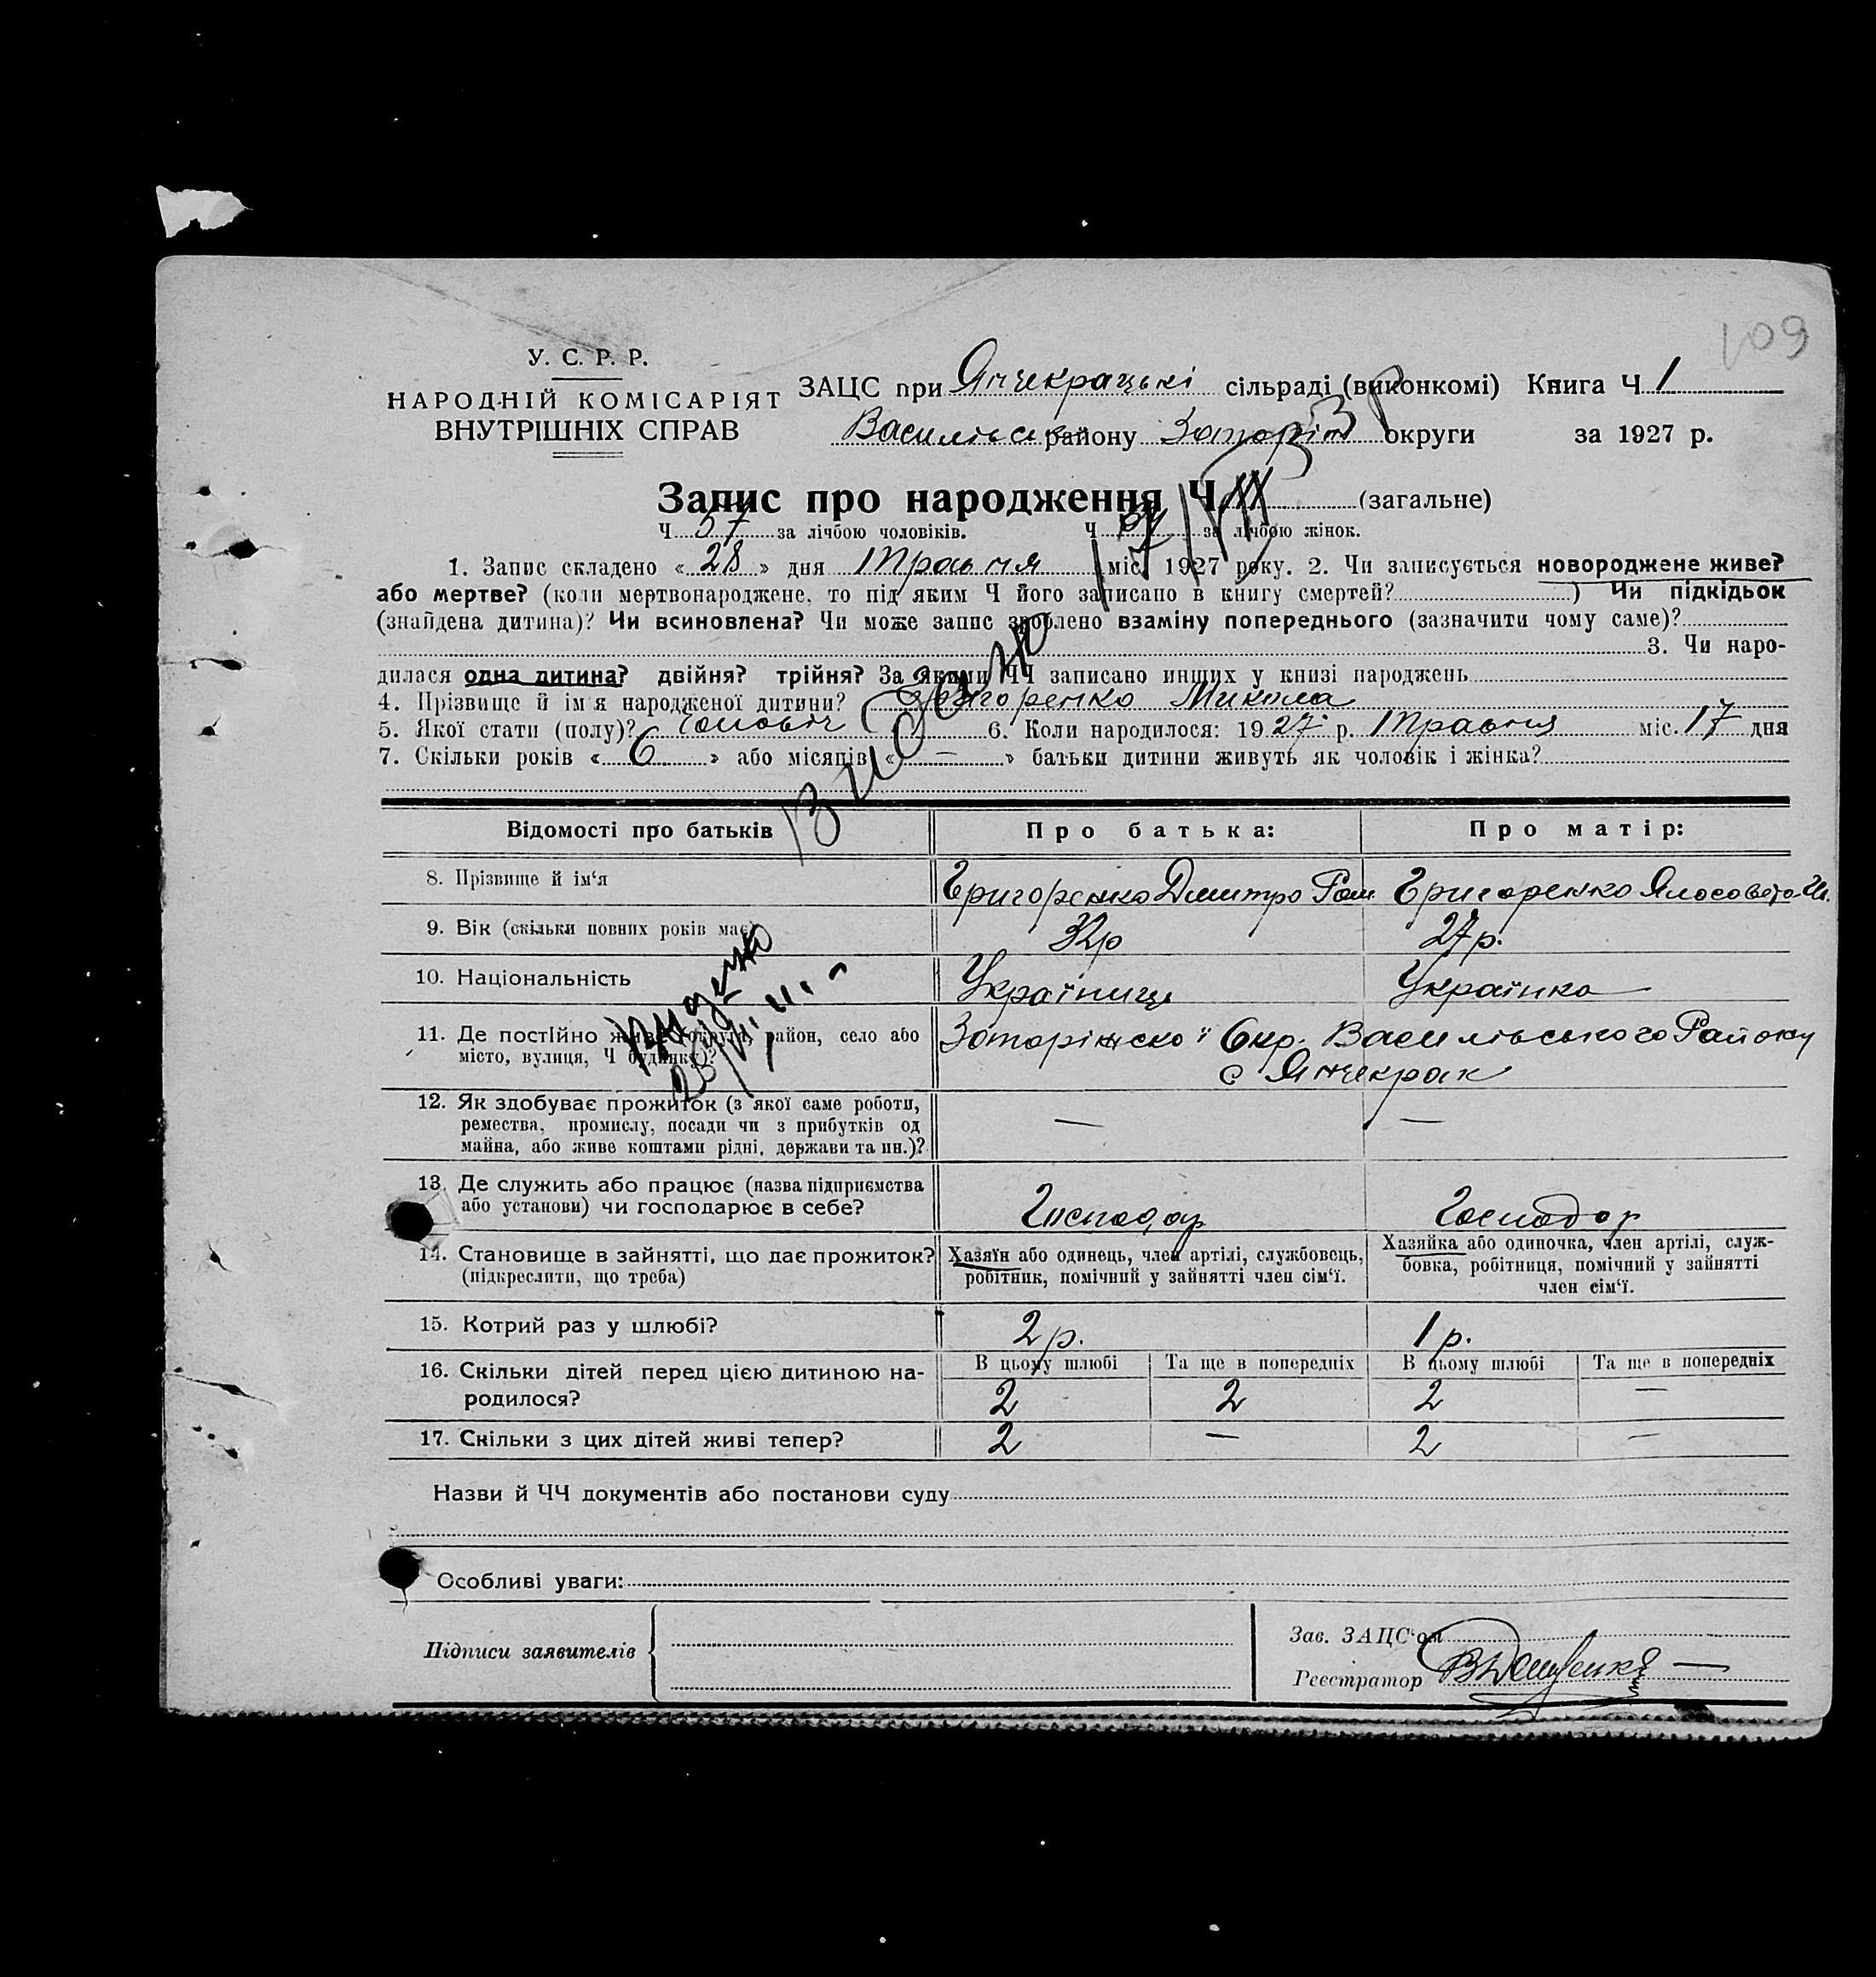 109
У. С. Р. Р.
НАРОДНІЙ КОМІСАРІЯТ
ВНУТРІШНІХ СПРАВ
ЗАЦС при Янчекрацькі сільраді (виконкомі) Книга Ч. 1
Василівськ району Запоріж округи за 1927 р.
Запис про народження Ч. (загальне)
Ч. 57 за лічбою чоловіків. Ч. за лічбою жінок.
1. Запис складено « 28 » дня Травня міс. 1927 року. 2. Чи записується новороджене живе?
або мертве? (коли мертвонароджене, то під яким Ч його записано в книгу смертей? ) Чи підкідьок
(знайдена дитина)? Чи всиновлена? Чи може запис зроблено взаміну попереднього (зазначити чому саме)?
3. Чи наро-
дилася одна дитина? двійня? трійня? За якими ЧЧ записано инших у книзі народжень
4. Прізвище й ім'я народженої дитини? Григоренко Микола
5. Якої стати (полу)? чоловіч 6. Коли народилося: 1927 р. Травня міс. 17 дня
7. Скільки років « 6 » або місяців « — » батьки дитини живуть як чоловік і жінка?
Відомості про батьків Про батька: Про матір:
8. Прізвище й ім'я Григоренко Дмитро Ром. Григоренко
9. Вік (скільки повних років має) 32р 27р.
10. Національність Українець Українка
11. Де постійно живе (округа, район, село або
місто, вулиця, Ч будинку)? Запоріжської Окр. Василівського Району
с Янчекрак
12. Як здобуває прожиток (з якої саме роботи,
ремества, промислу, посади чи з прибутків од
майна, або живе коштами рідні, держави та ин.)? — —
13. Де служить або працює (назва підприємства
або установи) чи господарює в себе? Господар Господар
14. Становище в зайнятті, що дає прожиток?
(підкреслити, що треба)
Хазяїн або одинець, член артілі, службовець,
робітник, помічний у зайнятті член сім'ї.
Хазяйка або одиночка, член артілі, служ-
бовка, робітниця, помічний у зайнятті
член сім'ї.
15. Котрий раз у шлюбі? 2 р. 1 р.
В цьому шлюбі Та ще в попередніх В цьому шлюбі Та ще в попередніх
16. Скільки дітей перед цією дитиною на-
родилося? 2 2 2 —
17. Скільки з цих дітей живі тепер? 2 — 2 —
Назви й ЧЧ документів або постанови суду
Особливі уваги:
Підписи заявителів
Зав. ЗАЦС'ом
Реєстратор